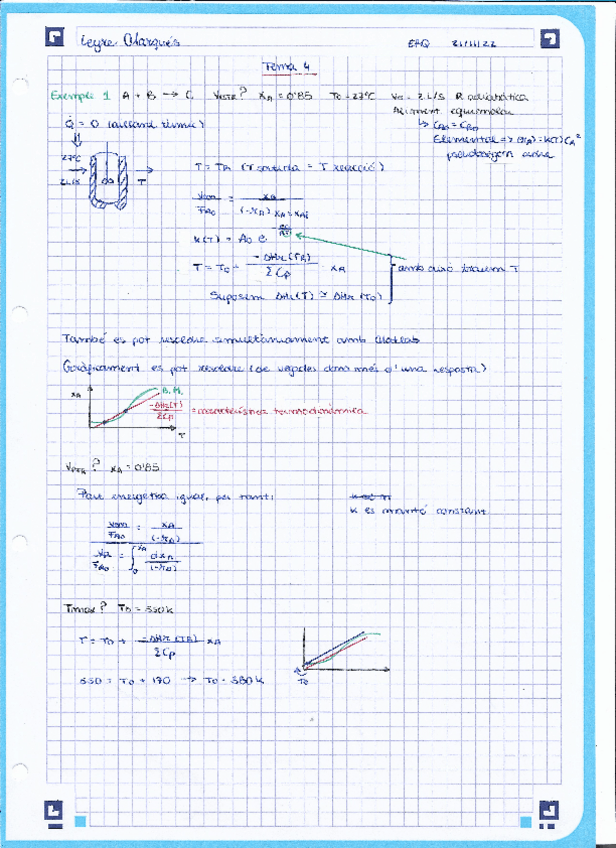 Leyre Marqués EAQ 21/11/22
Tema 4
Exemple 1 A + B → C VCSTR? XA = 0'85 T0 = 27ºC V0 = 2 L/s R. adiabàtica
Aliment equimolar
Q = 0 (aïllant tèrmic) ↳ CA0 = CB0
Elemental => (-rA) = k(T) CA²
27ºC
2 L/s T
T = TR (T sortida = T reacció)
VCSTR / FA0 = XA / (-rA) XA = XAf
k(T) = A0 e
T = T0 + -ΔHR(TR) / ΣCp XA amb això traiem T
Suposem ΔHR(T) ≅ ΔHR(T0)
També es pot resoldre simultàniament amb Matlab
Gràficament es pot resoldre (de vegades dona més d'una resposta)
XA B.M.
-ΔHR(T) / ΣCp = característica termodinàmica
T
VPFR? XA = 0'85
Part energètica igual, per tant:
k es manté constant
VCSTR / FA0 = XA / (-rA)
VR / FA0 = ∫0XA dXA / (-rA)
Tmax? TR = 550 K
T = T0 + -ΔHR(TR) / ΣCp XA
550 = T0 + 170 → T0 = 380 K
T0